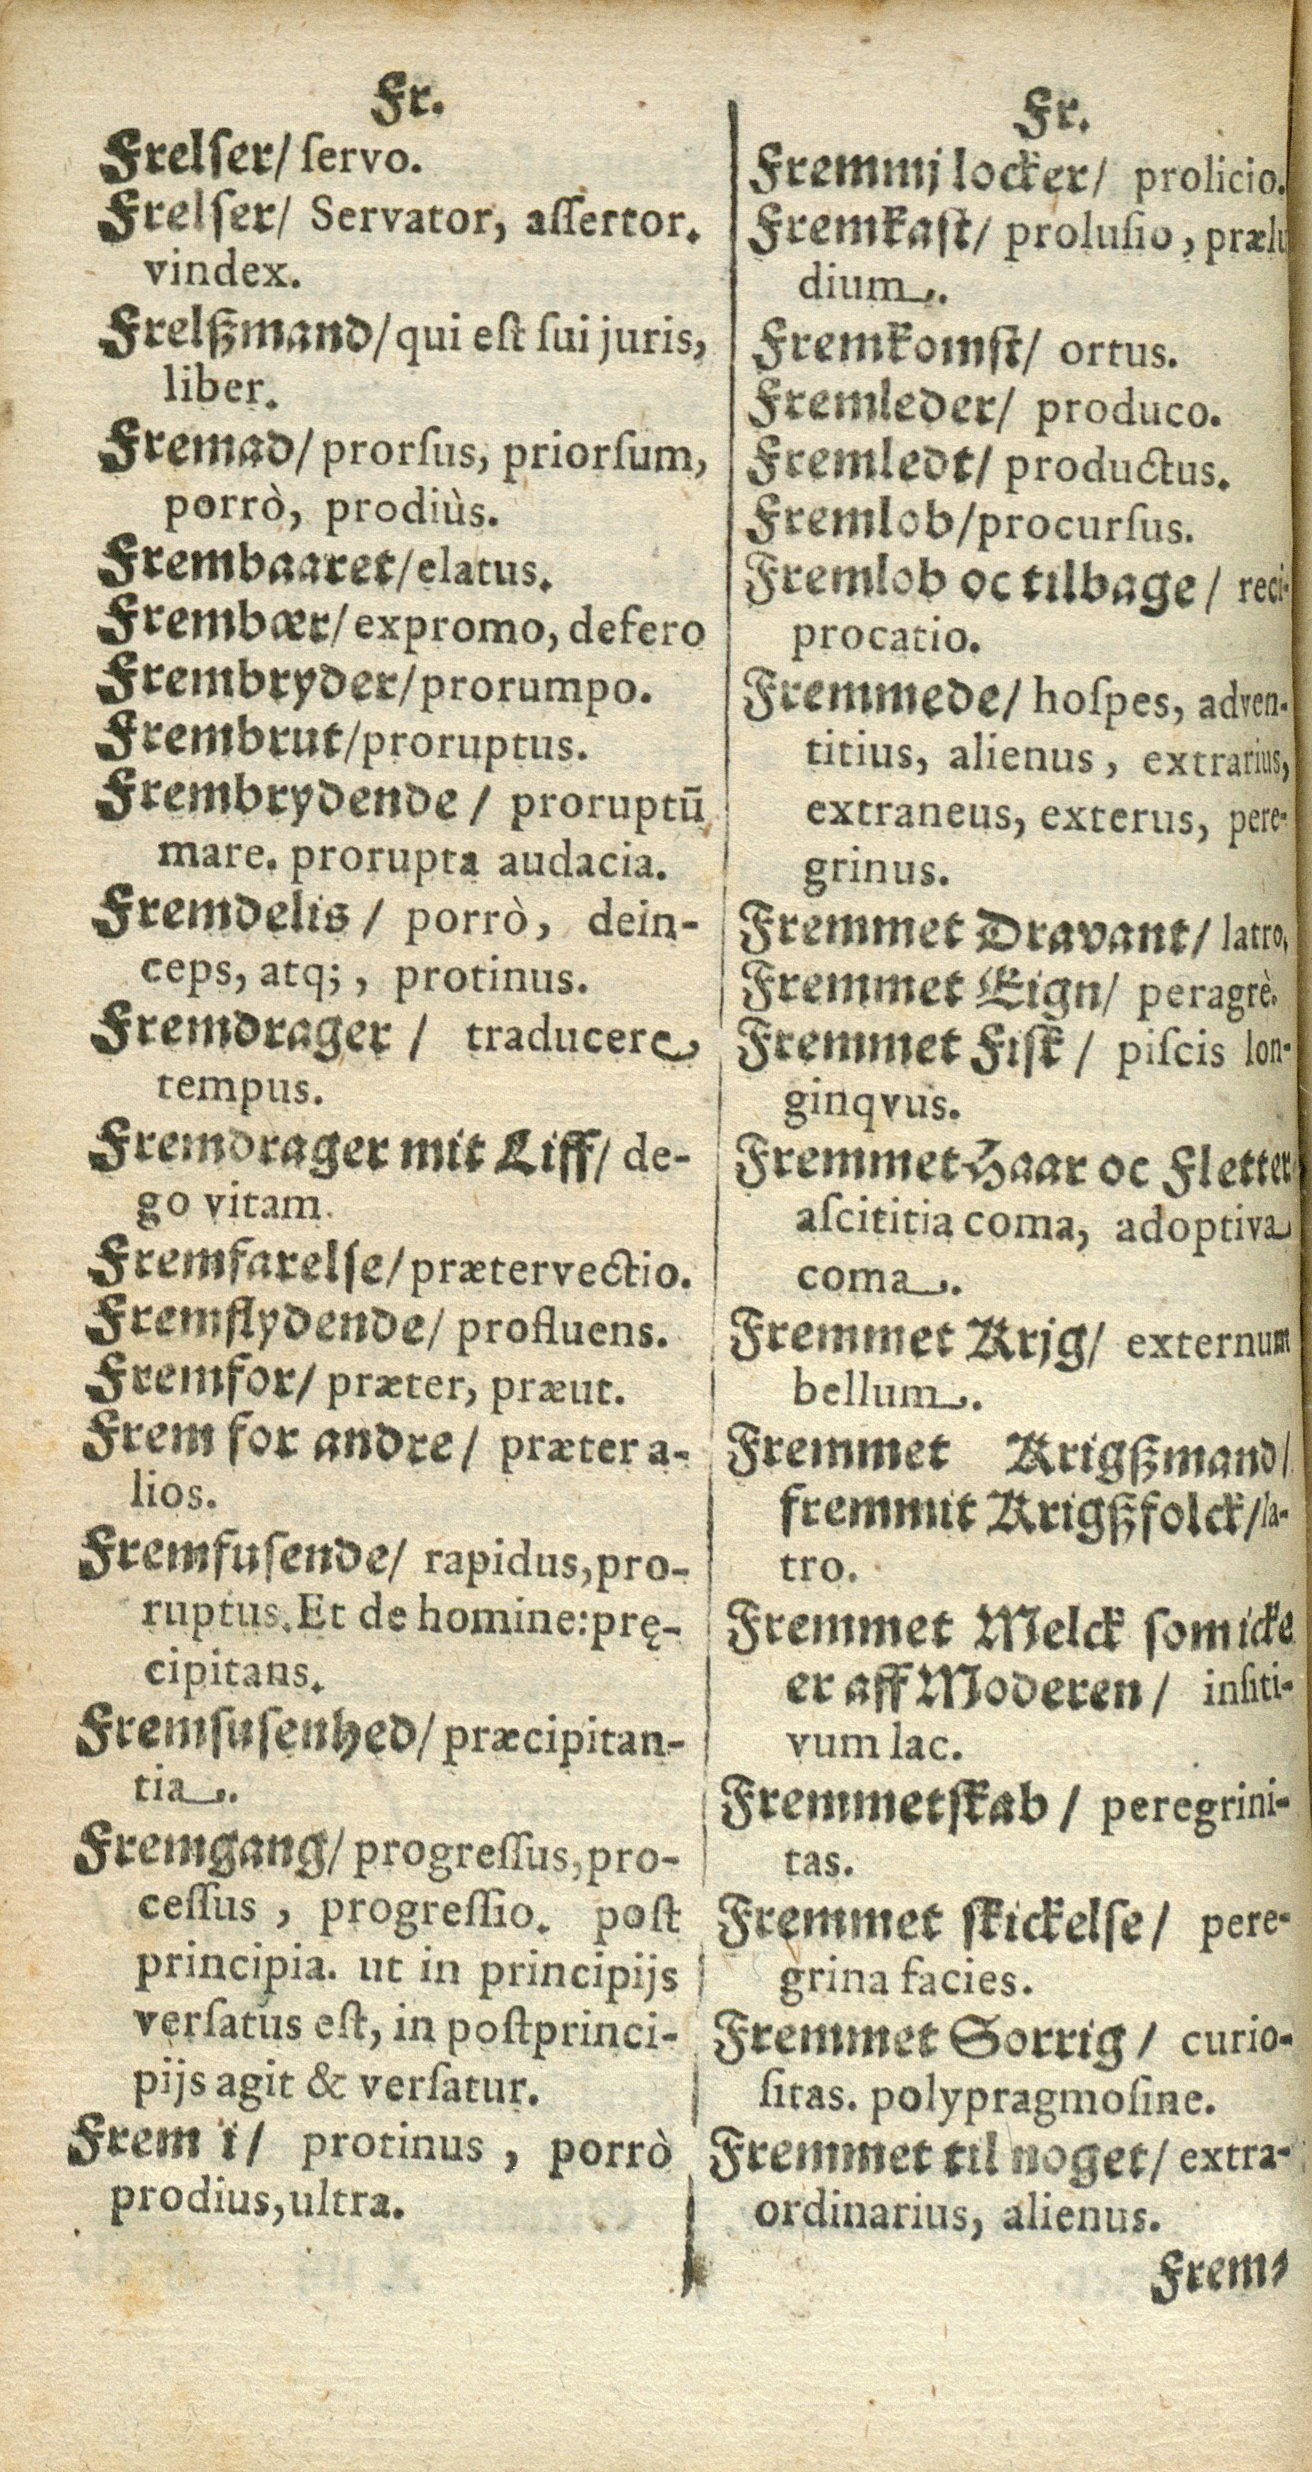 Fr.
Frelſer/ ſervo.
Frelſer/ Servator, aſſertor.
vindex.
Frelßmand/ qui eſt ſui juris,
liber.
Fremad/ prorſus, priorſum,
porrò, prodiùs.
Frembaaret/ elatus.
Frembær/ expromo, defero
Frembryder/ prorumpo.
Frembrut/ proruptus.
Frembrydende / proruptū
mare. prorupta audacia.
Fremdelis / porrò, dein-
ceps, atq;, protinus.
Fremdrager / traducere
tempus.
Fremdrager mit Liff/ de-
go vitam.
Fremfarelſe/ prætervectio.
Fremflydende/ profluens.
Fremfor/ præter, præut.
Frem for andre/ præter a-
lios.
Fremfuſende/ rapidus, pro-
ruptus. Et de homine: prę-
cipitans.
Fremſuſenhed/ præcipitan-
tia.
Fremgang/ progreſſus, pro-
ceſſus, progreſſio. poſt
principia. ut in principijs
verſatus eſt, in poſtprinci-
pijs agit & verſatur.
Frem i/ protinus, porrò
prodius, ultra.
Fr.
Fremmj locker/ prolicio.
Fremkaſt/ proluſio, prælu
dium.
Fremkomſt/ ortus.
Fremleder/ produco.
Fremledt/ productus.
Fremlob/ procurſus.
Fremlob oc tilbage / reci-
procatio.
Fremmede/ hoſpes, adven-
titius, alienus, extrarius,
extraneus, exterus, pere-
grinus.
Fremmet Dravant/ latro,
Fremmet Eign/ peragrè.
Fremmet Fiſk / piſcis lon-
ginqvus.
Fremmet Haar oc Fletter
aſcititia coma, adoptiva
coma.
Fremmet Krjg/ externum
bellum.
Fremmet Krigßmand/
fremmit Krigßfolck/ la-
tro.
Fremmet Melck ſom icke
er aff Moderen / inſiti-
vum lac.
Fremmetſkab / peregrini-
tas.
Fremmet ſkickelſe/ pere-
grina facies.
Fremmet Sorrig / curio-
ſitas. polypragmoſine.
Fremmet til noget/ extra-
ordinarius, alienus.
Frem-